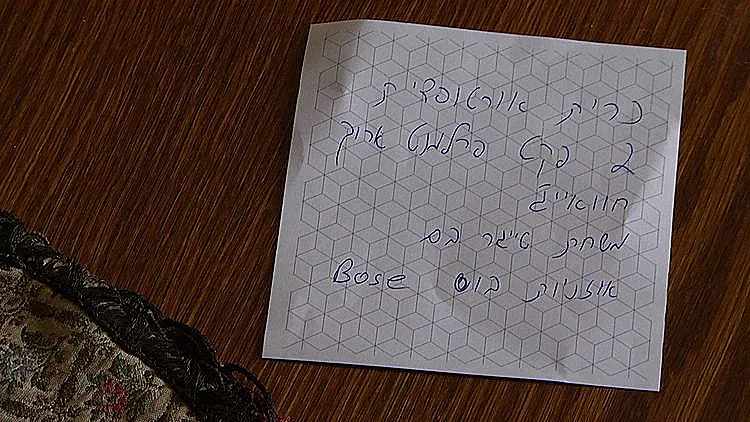 כרית אורטופדית
2 פקט פרלמנט ארוך
חוואייג'
משחת טייגר בם
אוזניות בוס Bose